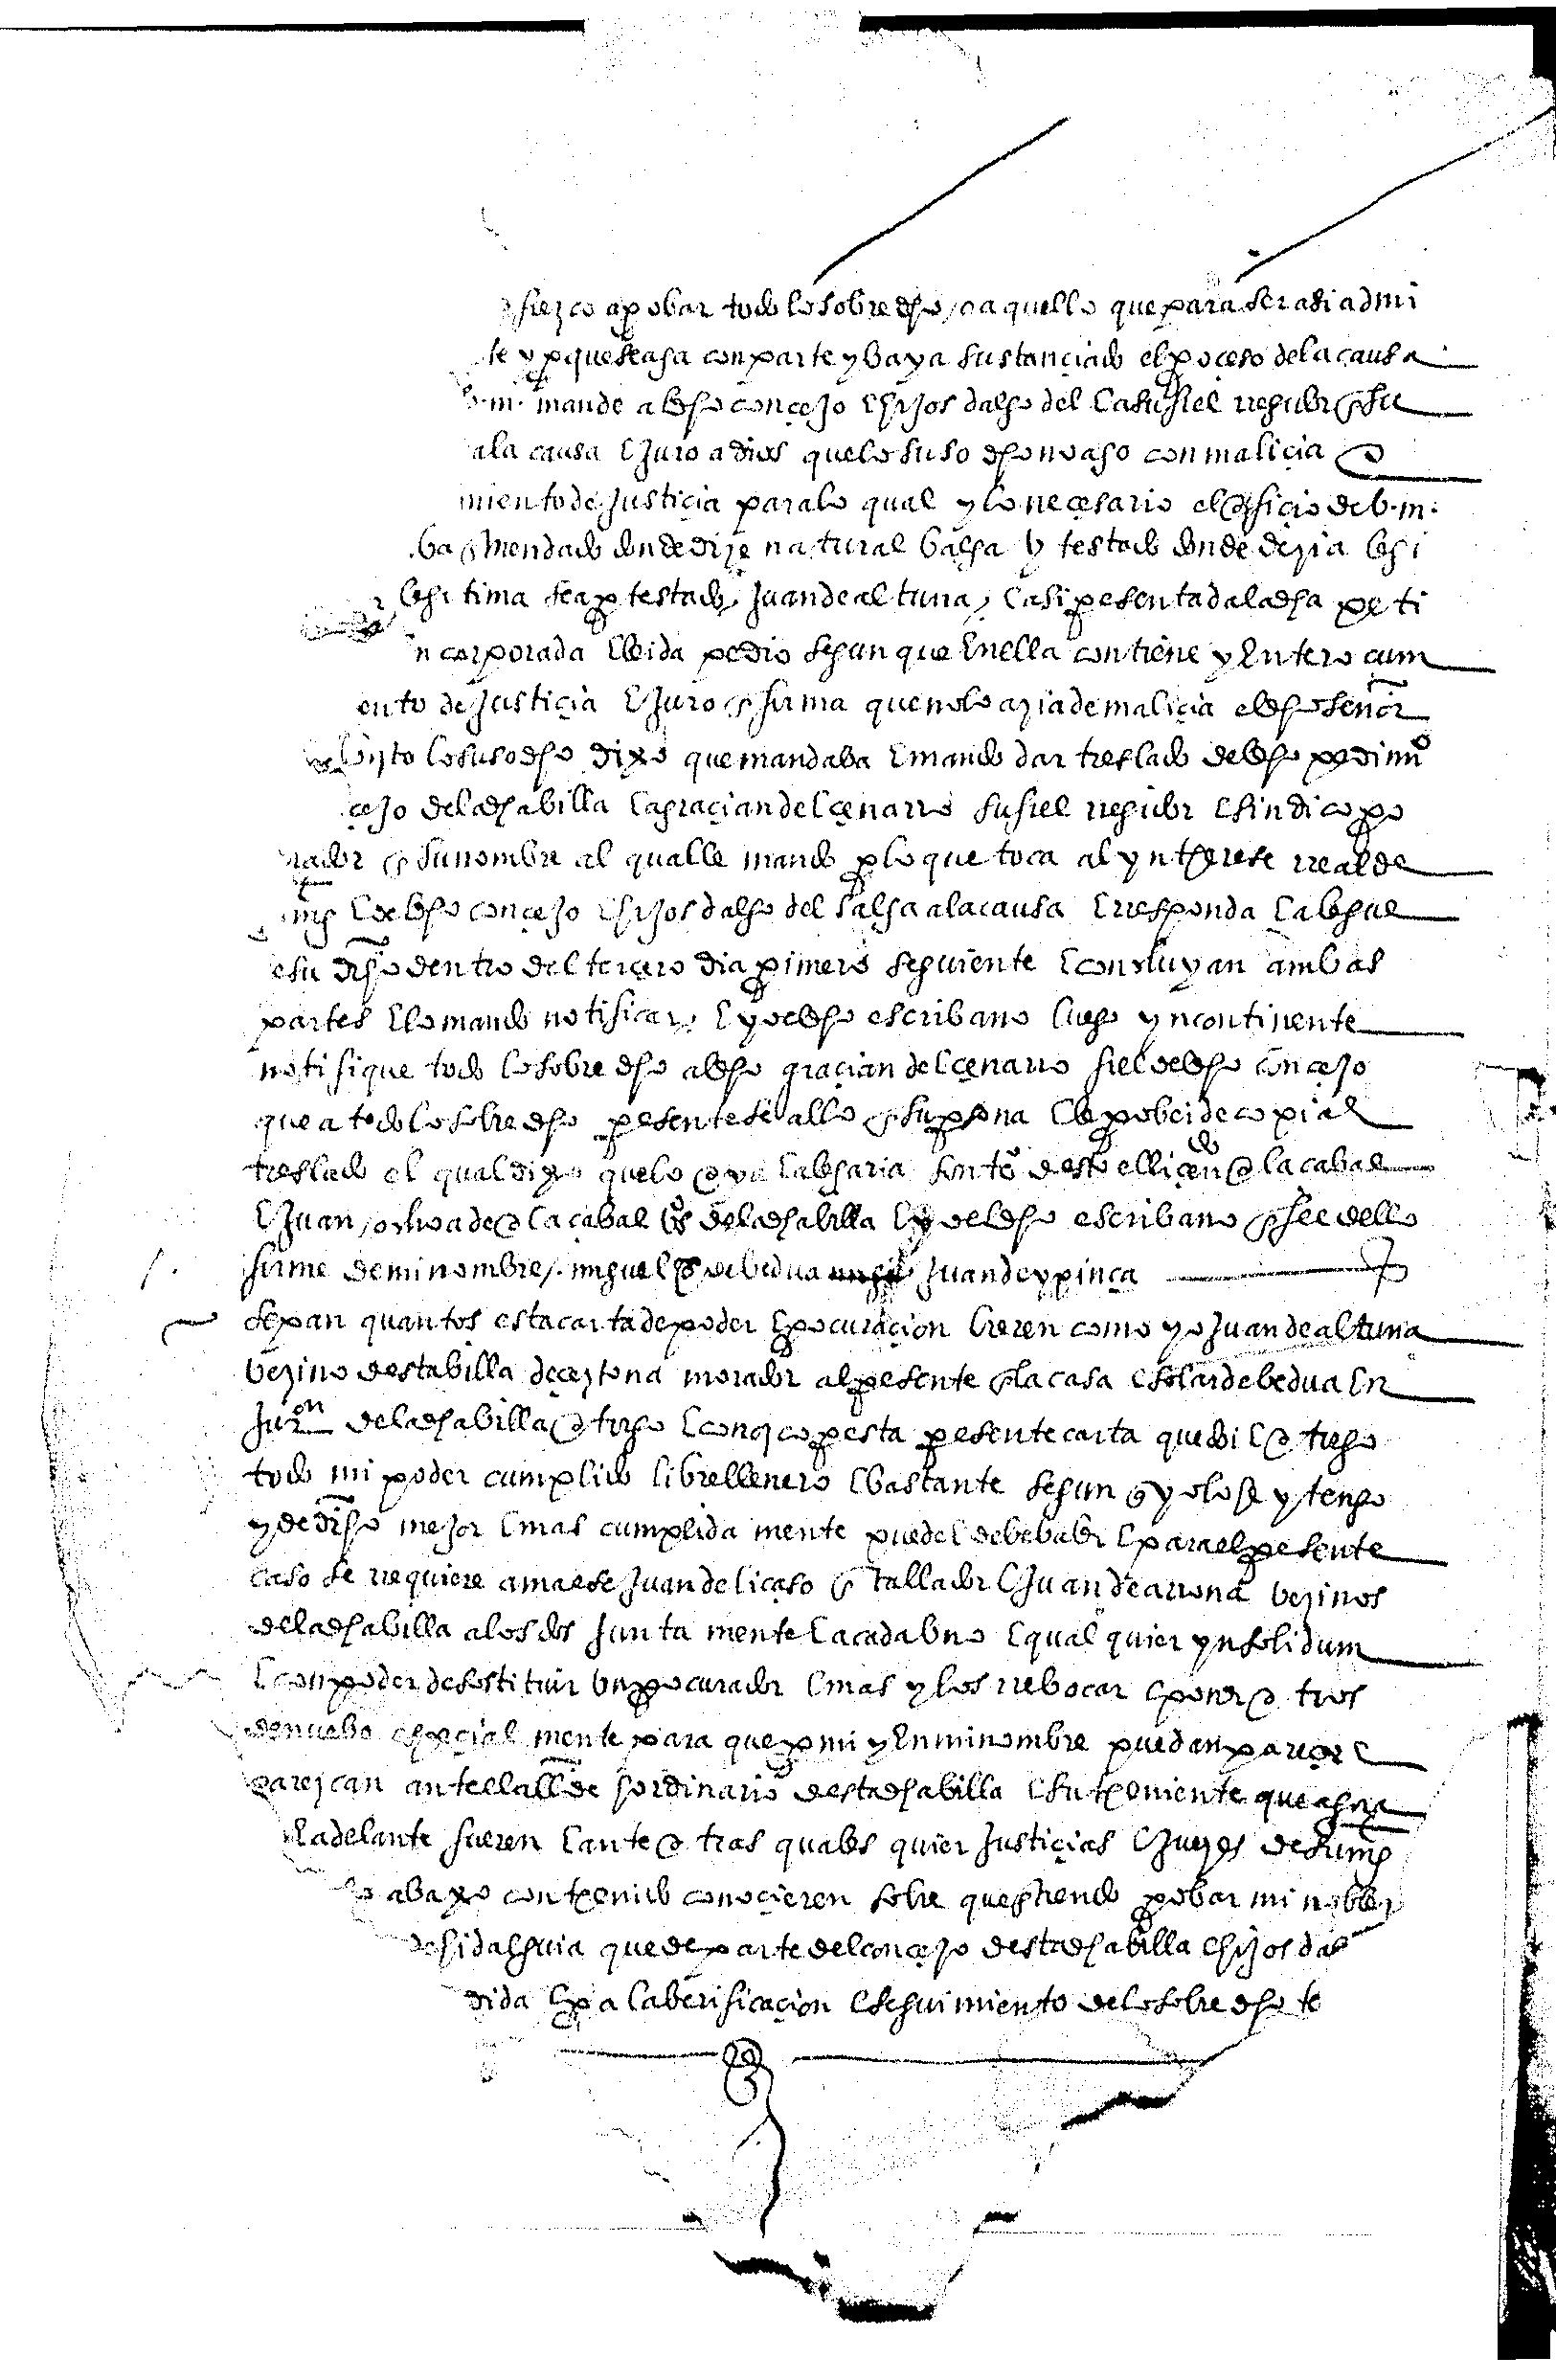 ofrezco a probar todo lo sobre dho, o aquello que para ser adi admi
te y pa que se aga con parte y baya sustanciado el proceso de la causa
b. m. mande al dho concejo e hijos dalgo del e a su fiel rregidor en su
a la causa e juro a dios que lo suso dho no ago con malicia e
miento de justicia para lo qual y lo necesario el oficio de b. m.
ba enmendado donde dize natural balga y testado donde dezia legi
legitima sea por testado, Juan de altuna, e asi presentada la dha peti
n corporada e leida pedio segun que en ella contiene y entero cum
ento de justicia e juro en forma que no lo azia de malicia el dho señor
bisto lo suso dho dixo que mandaba e mando dar treslado del dho pedimio
cejo de la dha billa e a graçian de lçenarro su fiel rregidor e sindico pro
rador en su nombre al qual le mando por lo que toca al ynterese rreal de
mg e del dho concejo e hijos dalgo del salga a la causa e rresponda e alegue
e su drho dentro del tercero dia primero seguiente e concluyan ambas
partes e lo mando notificar, e yo el dho escribano luego yncontinente
notifique todo lo sobre dho al dho graçian de lçenarro fiel del dho concejo
que a todo lo sobre dho presente se allo en su persona e le probei de copia e
treslado el qual dixo que lo oya e alegaria son to desto el liçendo laçabal
e Juan ochoa de laçabal bos de la dha billa e yo el dho escribano en fee dello
firme de mi nombre, miguel de bedua Juan de ypinça
Sepan quantos esta carta de poder e procuraçion bieren como yo Juan de altuna
bezino desta billa de çeztona morador al presente en la casa e solar de bedua en
juron de la dha billa otorgo e conozco por esta presente carta que doi e otrogo
todo mi poder cumplido libre llenero e bastante segun que yo lo he y tengo
y de drho mejor e mas cumplida mente puede e debe baler e para el presente
caso se rrequiere a maese Juan de liçaso entallador e Juan de arrona bezinos
de la dha billa a los dos junta mente e a cada bno e qual quier ynsolidum
e con poder de sostituir bn procurador e mas y los rrebocar e poner otros
de nuebo espeçial mente para que por mi y en mi nombre puedan pareçer e
parezcan ante el allde hordinario desta dha billa e su teniente que agora
e adelante fueren e ante otras quales quier justiçias e juezes de su mg
lo abaxo contenido conoçieren sobre que entiendo probar mi noblez
de hidalguia que de parte del conçejo desta dha billa e hijos dal
dida e pa la berificaçion e seguimiento de lo sobre dho te